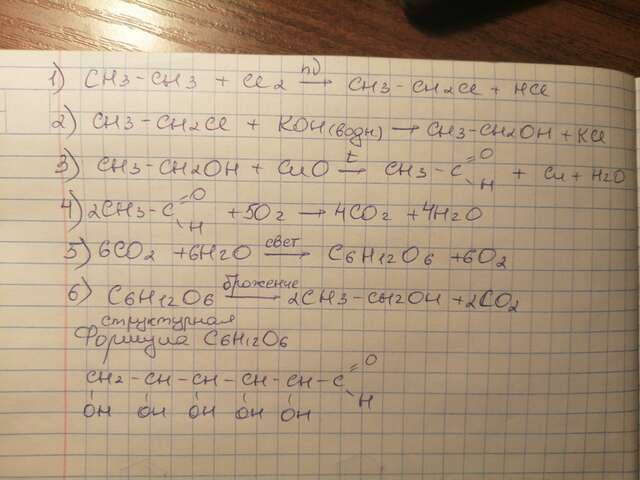 1) CH3-CH3 + Cl2 hν→ CH3-CH2Cl + HCl
2) CH3-CH2Cl + KOH(водн) → CH3-CH2OH + KCl
3) CH3-CH2OH + CuO t→ CH3-C=O-H + Cu + H2O
4) 2CH3-C=O-H + 5O2 → 4CO2 + 4H2O
5) 6CO2 + 6H2O свет→ C6H12O6 + 6O2
6) C6H12O6 брожение→ 2CH3-CH2OH + 2CO2
структурная
Формула C6H12O6
CH2-CH-CH-CH-CH-C=O-H
OH OH OH OH OH